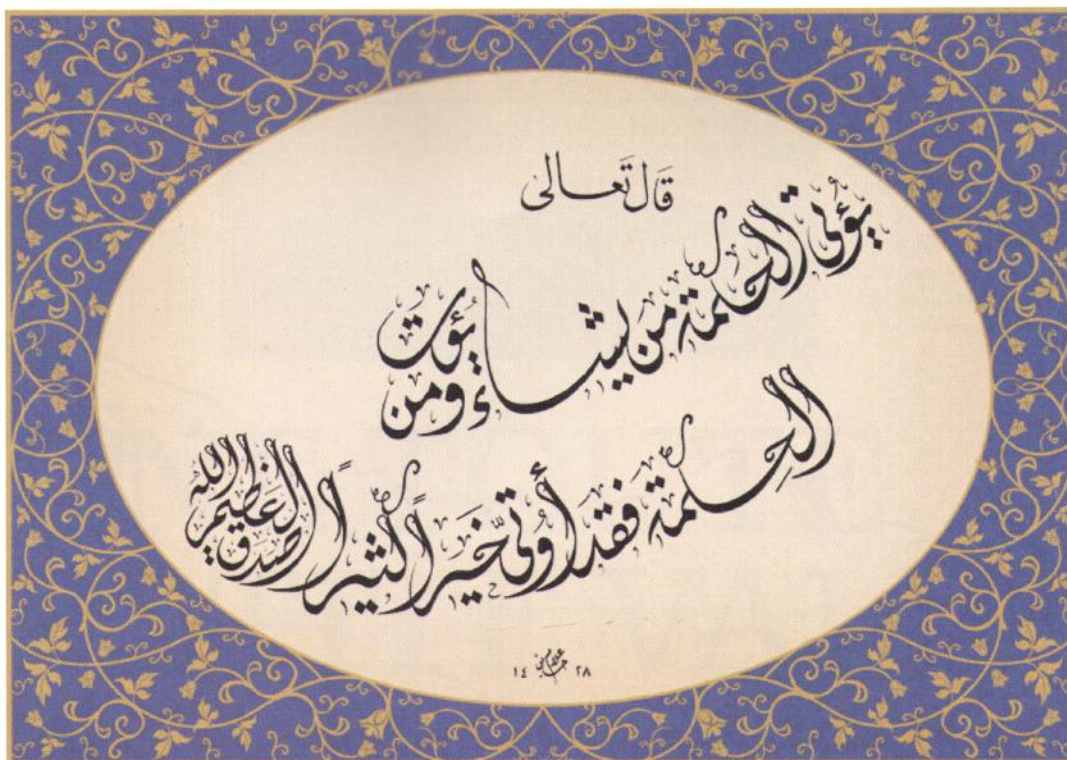 قَالَ تَعَالى
يُؤتي الحكمة من يشاءُ ومن يُؤت
الحِكمة فقد أُوتيَ خَيراً كثيراً صدق الله العظيم
١٤ ٢٨